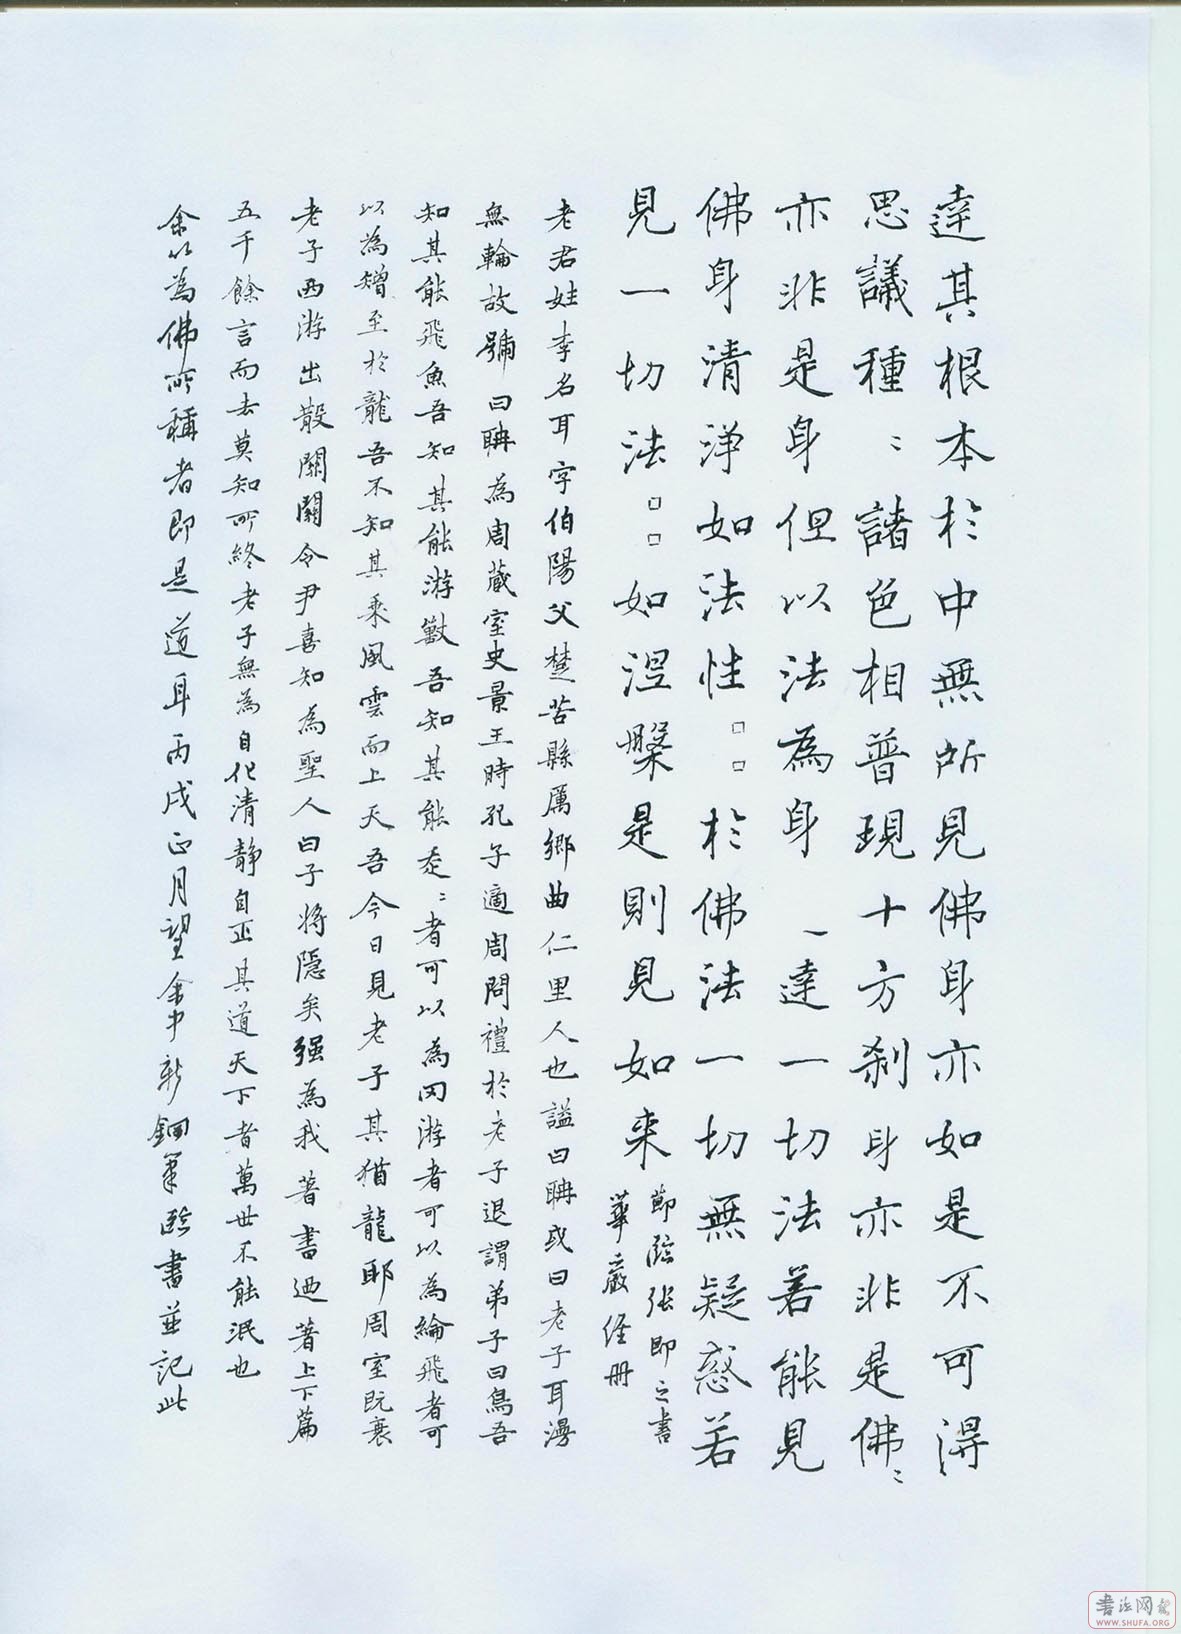 達其根本於中無所見佛身亦如是不可得
思議種〻諸色相普現十方刹身亦非是佛〻
亦非是身但以法為身一達一切法若能見
佛身清淨如法性□□於佛法一切無疑惑若
見一切法□□如涅槃是則見如来
節臨張即之書
華嚴經冊
老君姓李名耳字伯陽父楚苦縣厲鄉曲仁里人也謚曰聃或曰老子耳漫
無輪故號曰聃為周蔵室史景王時孔子適周問禮於老子退謂弟子曰鳥吾
知其能飛魚吾知其能游獸吾知其能走〻者可以為罔游者可以為綸飛者可
以為矰至於龍吾不知其乘風雲而上天吾今日見老子其猶龍耶周室既衰
老子西游出散關關令尹喜知為聖人曰子将隱矣强為我著書迺著上下篇
五千餘言而去莫知所終老子無為自化清靜自正其道天下者萬世不能泯也
余以為佛所稱者即是道耳丙戌正月望余中新鋼筆臨書並記此
書法网
WWW.SHUFA.ORG